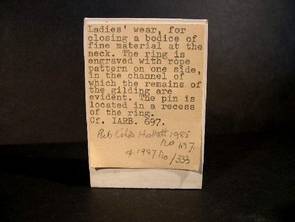 Ladies' wear, for
closing a bodice of
fine material at the
neck. The ring is
engraved with rope
pattern on one side,
in the channel of
which the remains of
the gilding are
evident. The pin is
located in a recess
of the ring.
Cf. IARB. 697.
Pub 1985
No 107.
& 1987 No /333